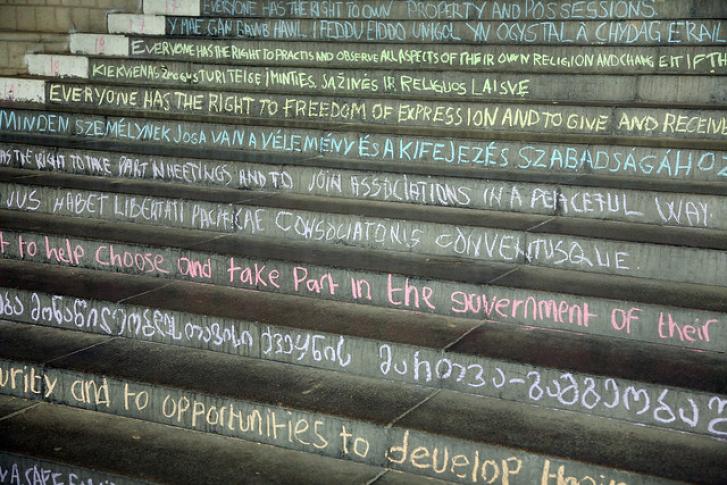 EVERYONE HAS THE RIGHT TO OWN PROPERTY AND POSSESSIONS
Y MAE GAN BAWB HAWL I FEDDU EIDDO UNIGOL YN OGYSTAL Â CHYDAG ERAIL
EVERYONE HAS THE RIGHT TO PRACTIS AND OBSERVE ALL ASPECTS OF THEIR OWN RELIGION AND CHANGE IT IF TH
KIEKVIENAS ŽMOGUS TURI TEISĘ Į MINTIES, SĄŽINĖS IR RELIGIJOS LAISVĘ
EVERYONE HAS THE RIGHT TO FREEDOM OF EXPRESSION AND TO GIVE AND RECEIV
MINDEN SZEMÉLYNEK JOGA VAN A VÉLEMÉNY ÉS A KIFEJEZÉS SZABADSÁGÁHOZ
AS THE RIGHT TO TAKE PART IN MEETINGS AND TO JOIN ASSOCIATIONS IN A PEACEFUL WAY.
JUS HABET LIBERTATI PACIFICAE CONSOCIATONIS CONVENTUSQUE.
t to help choose and take Part in the government of their
მონაწილეობდეს თავისი ქვეყნის მართვა-გამგეობაშ
urity and to opportunities to develop their